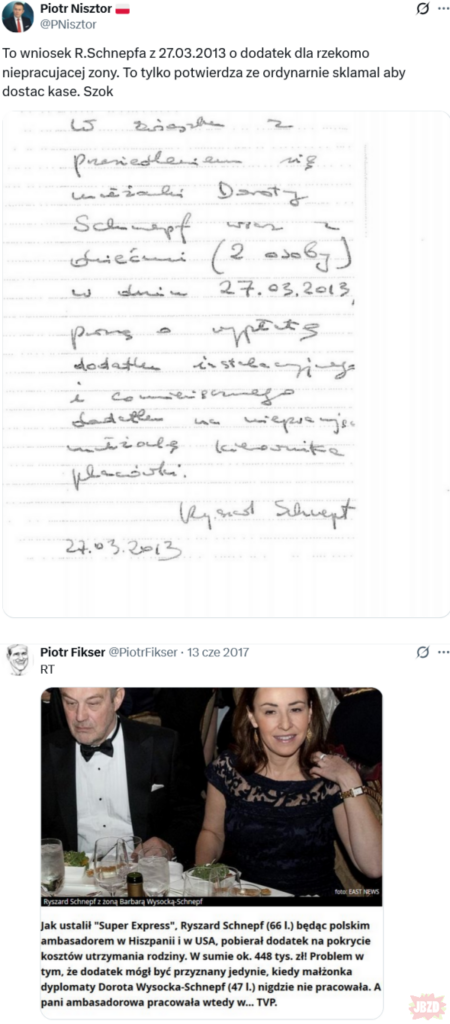 Piotr Nisztor
@PNisztor
To wniosek R.Schnepfa z 27.03.2013 o dodatek dla rzekomo
niepracujacej zony. To tylko potwierdza ze ordynarnie sklamal aby
dostac kase. Szok
W związku z
przesiedleniem się
małżonki Doroty
Schnepf wraz z
dziećmi (2 osoby)
w dniu 27.03.2013,
proszę o wypłatę
dodatku instalacyjnego
i comiesięcznego
dodatku na niepracują.
małżonkę kierownika
placówki.
Ryszard Schnepf
27.03.2013
Piotr Fikser @PiotrFikser · 13 cze 2017
RT
foto: EAST NEWS
Ryszard Schnepf z żoną Barbarą Wysocką-Schnepf
Jak ustalił "Super Express", Ryszard Schnepf (66 l.) będąc polskim
ambasadorem w Hiszpanii i w USA, pobierał dodatek na pokrycie
kosztów utrzymania rodziny. W sumie ok. 448 tys. zł! Problem w
tym, że dodatek mógł być przyznany jedynie, kiedy małżonka
dyplomaty Dorota Wysocka-Schnepf (47 l.) nigdzie nie pracowała. A
pani ambasadorowa pracowała wtedy w... TVP.
JBZD